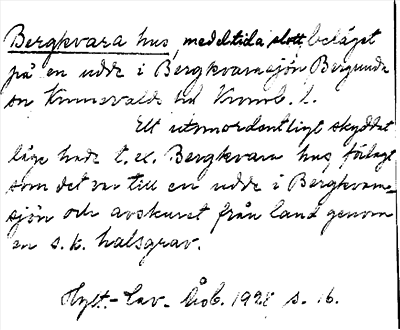 Bergkvara hus, medeltida slott, beläget
på en udde i Bergkvarasjön Bergunda
sn Kinnevalds hd Kronob. l.
Ett utomordentligt skyddat
läge hade t. ex. Bergkvara hus, förlagt
som det var till en udde i Bergkvara-
sjön och avskuret från land genom
en s. k. halsgrav.
Hylt.-Cav. Åsb. 1928 s. 16.